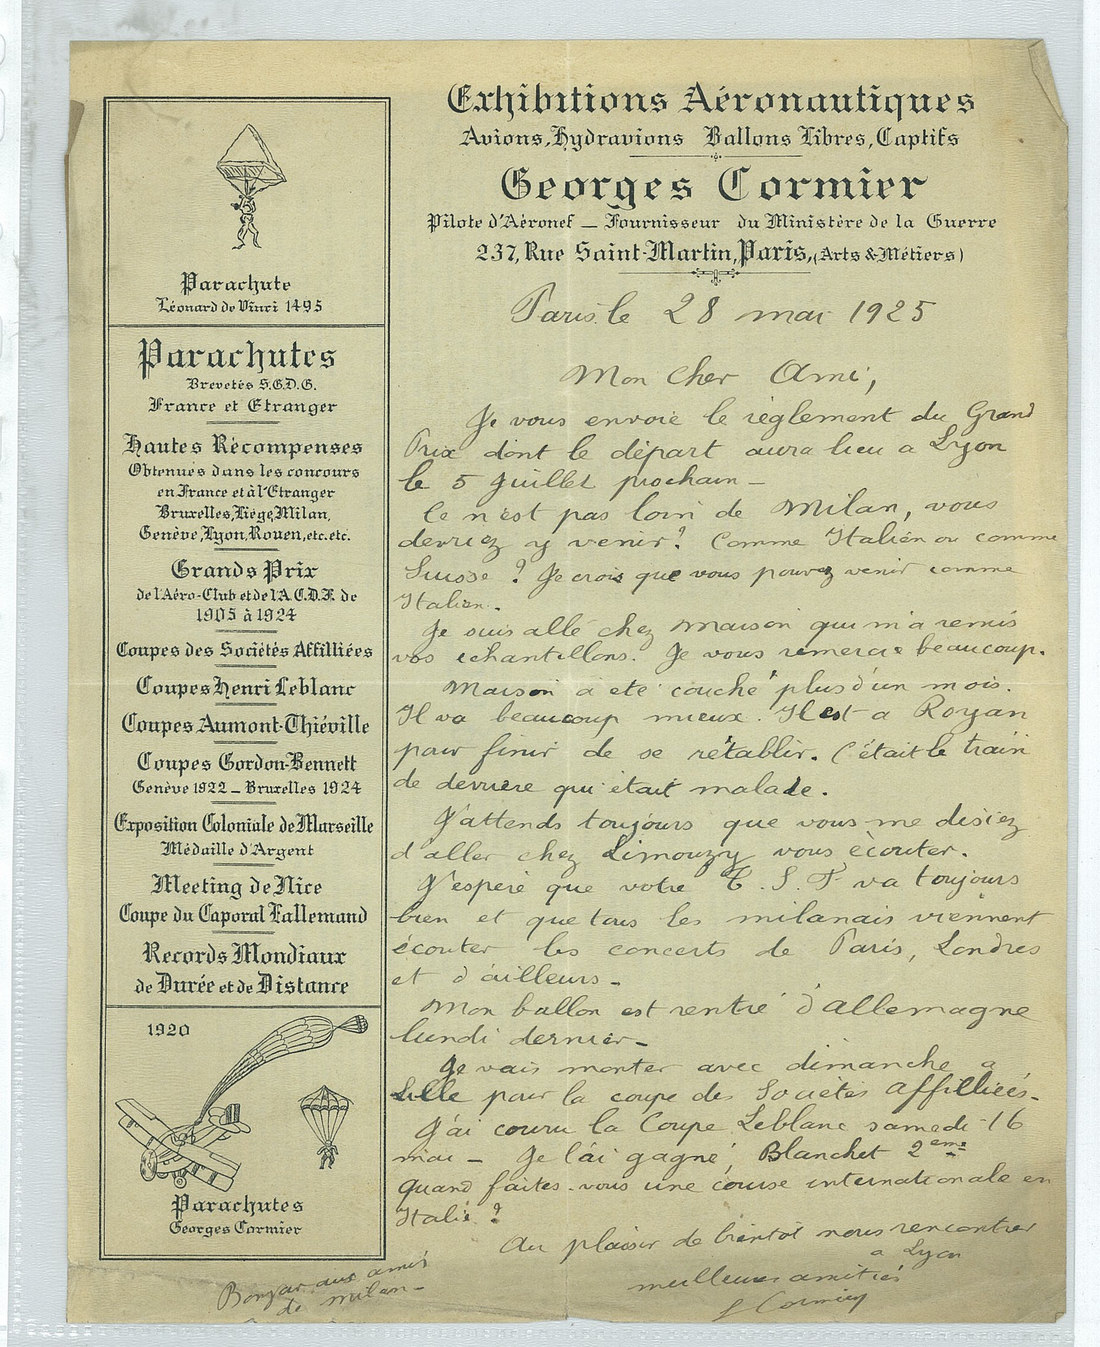 Parachute
Léonard de Vinci 1495
Parachutes
Brevetés S.G.D.G.
France et Etranger
Hautes Récompenses
Obtenues dans les concours
en France et à l'Etranger
Bruxelles, Liége, Milan,
Genève, Lyon, Rouen, etc. etc.
Grands Prix
de l'Aéro-Club et de l'A.C.D.F. de
1905 à 1924
Coupes des Sociétés Affilliées
Coupes Henri Leblanc
Coupes Aumont-Thiéville
Coupes Gordon-Bennett
Genève 1922 _ Bruxelles 1924
Exposition Coloniale de Marseille
Médaille d'Argent
Meeting de Nice
Coupe du Caporal Lallemand
Records Mondiaux
de Durée et de Distance
1920
Parachutes
Georges Cormier
Exhibitions Aéronautiques
Avions, Hydravions Ballons Libres, Captifs
Georges Cormier
Pilote d'Aéronef _ Fournisseur du Ministère de la Guerre
237, Rue Saint-Martin, Paris, (Arts & Métiers)
Paris. le 28 mai 1925
Mon Cher Ami,
Je vous envoie le règlement du Grand
Prix dont le départ aura lieu a Lyon
le 5 Juillet prochain _
Ce n'est pas loin de Milan, vous
devriez y venir ? Comme Italien ou comme
Suisse ? Je crois que vous pouvez venir comme
Italien.
Je suis allé chez Maison qui m'a remis
vos echantillons. Je vous remercie beaucoup.
Maison a été couché plus d'un mois.
Il va beaucoup mieux. Il est a Royan
pour finir de se rétablir. C'était le train
de derrière qui était malade.
J'attends toujours que vous me disiez
d'aller chez Limouzy vous écouter.
J'espère que votre T.S.F va toujours
bien et que tous les milanais viennent
écouter les concerts de Paris, Londres
et d'ailleurs _
Mon ballon est rentré d'allemagne
lundi dernier _
Je vais monter avec dimanche a
Lille pour la coupe des Sociétés affilliées _
J'ai couru la Coupe Leblanc samedi 16
mai _ Je l'ai gagné, Blanchet 2eme
Quand faites-vous une course internationale en
Italie ?
Au plaisir de bientot nous rencontrer
a Lyon
meilleures amitiés
G Cormier
Bonjour aux amis
de milan _